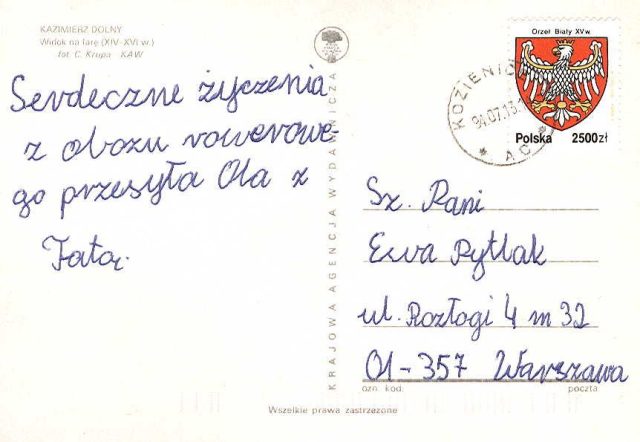 KAZIMIERZ DOLNY
Widok na farę (XIV-XVI w.)
fot. C. Krupa KAW
Serdeczne życzenia
z obozu rowerowe-
go przesyła Ola z
Tatą.
KRAJOWA AGENCJA WYDAWNICZA
Orzeł Biały XV w.
Polska 2500 zł
KOZIENICE
94.07.13
* A C *
Sz. Pani
Ewa Pytlak
ul. Rozłogi 4 m 32
01-357 Warszawa
ozn. kod. poczta
Wszelkie prawa zastrzeżone